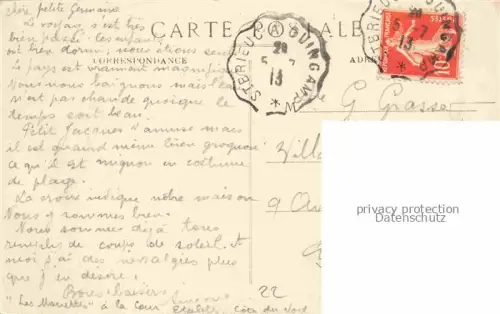 chère petite Germaine
Le voyage s'est très
bien passé. les enfants
ont bien dormi; nous étions seuls
Le pays est vraiment magnifique
Nous nous baignons mais l'eau
n'est pas chaude quoique le
temps soit beau.
Petit Jacques s'amuse mais
il est quand même bien grognon
ce qu'il est mignon en costume
de plage.
La croix indique notre maison
Nous y sommes bien.
Nous sommes déjà tous
remplis de coups de soleil. et
moi j'ai des névralgies plus
que j'en désire.
Bons baisers
"Les Mouettes" à la Cour Etables, Côte du Nord
CARTE POSTALE
CORRESPONDANCE
ADRES
STBRIEUC A GUINGAMP
20
5-7
13
STBRIEUC GUINGAMP
20
5-7
13
10
G Grasse
Villa
9 Au
22
privacy protection
Datenschutz